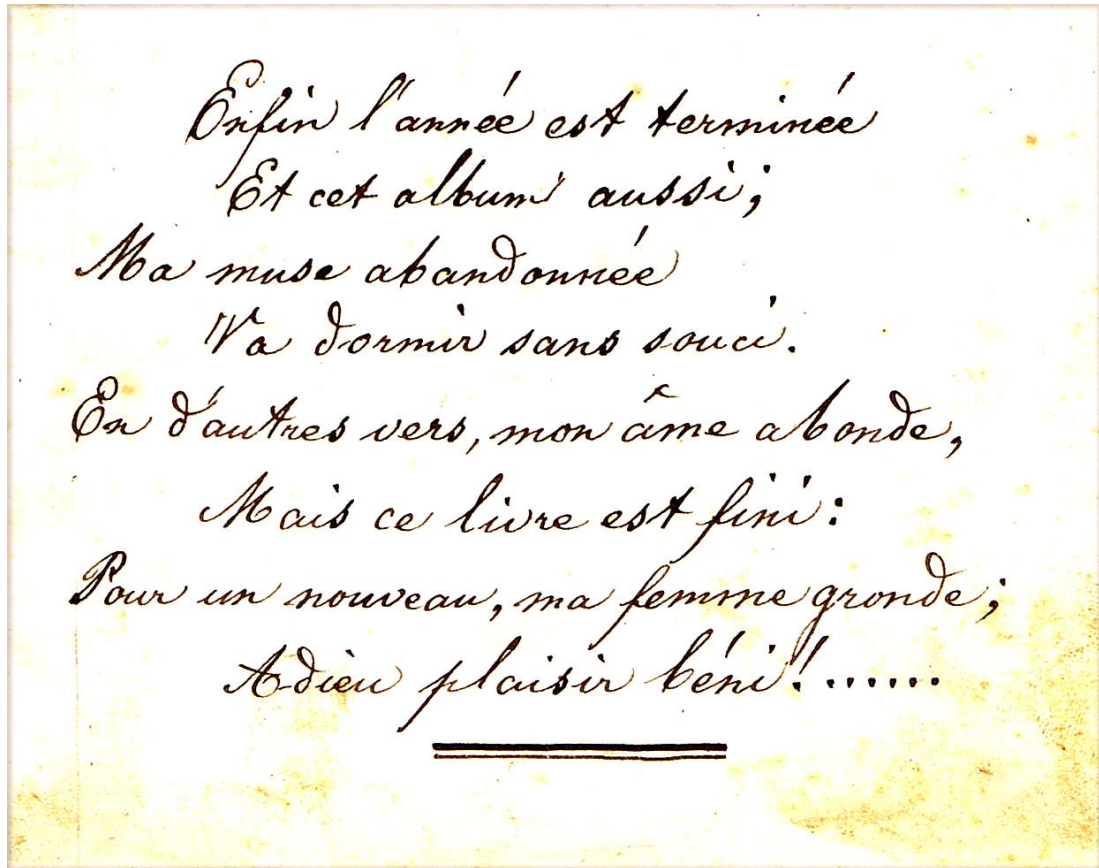 Enfin l'année est terminée
Et cet album aussi;
Ma muse abandonnée
Va dormir sans souci.
En d'autres vers, mon âme abonde,
Mais ce livre est fini:
Pour un nouveau, ma femme gronde;
Adieu plaisir béni!......